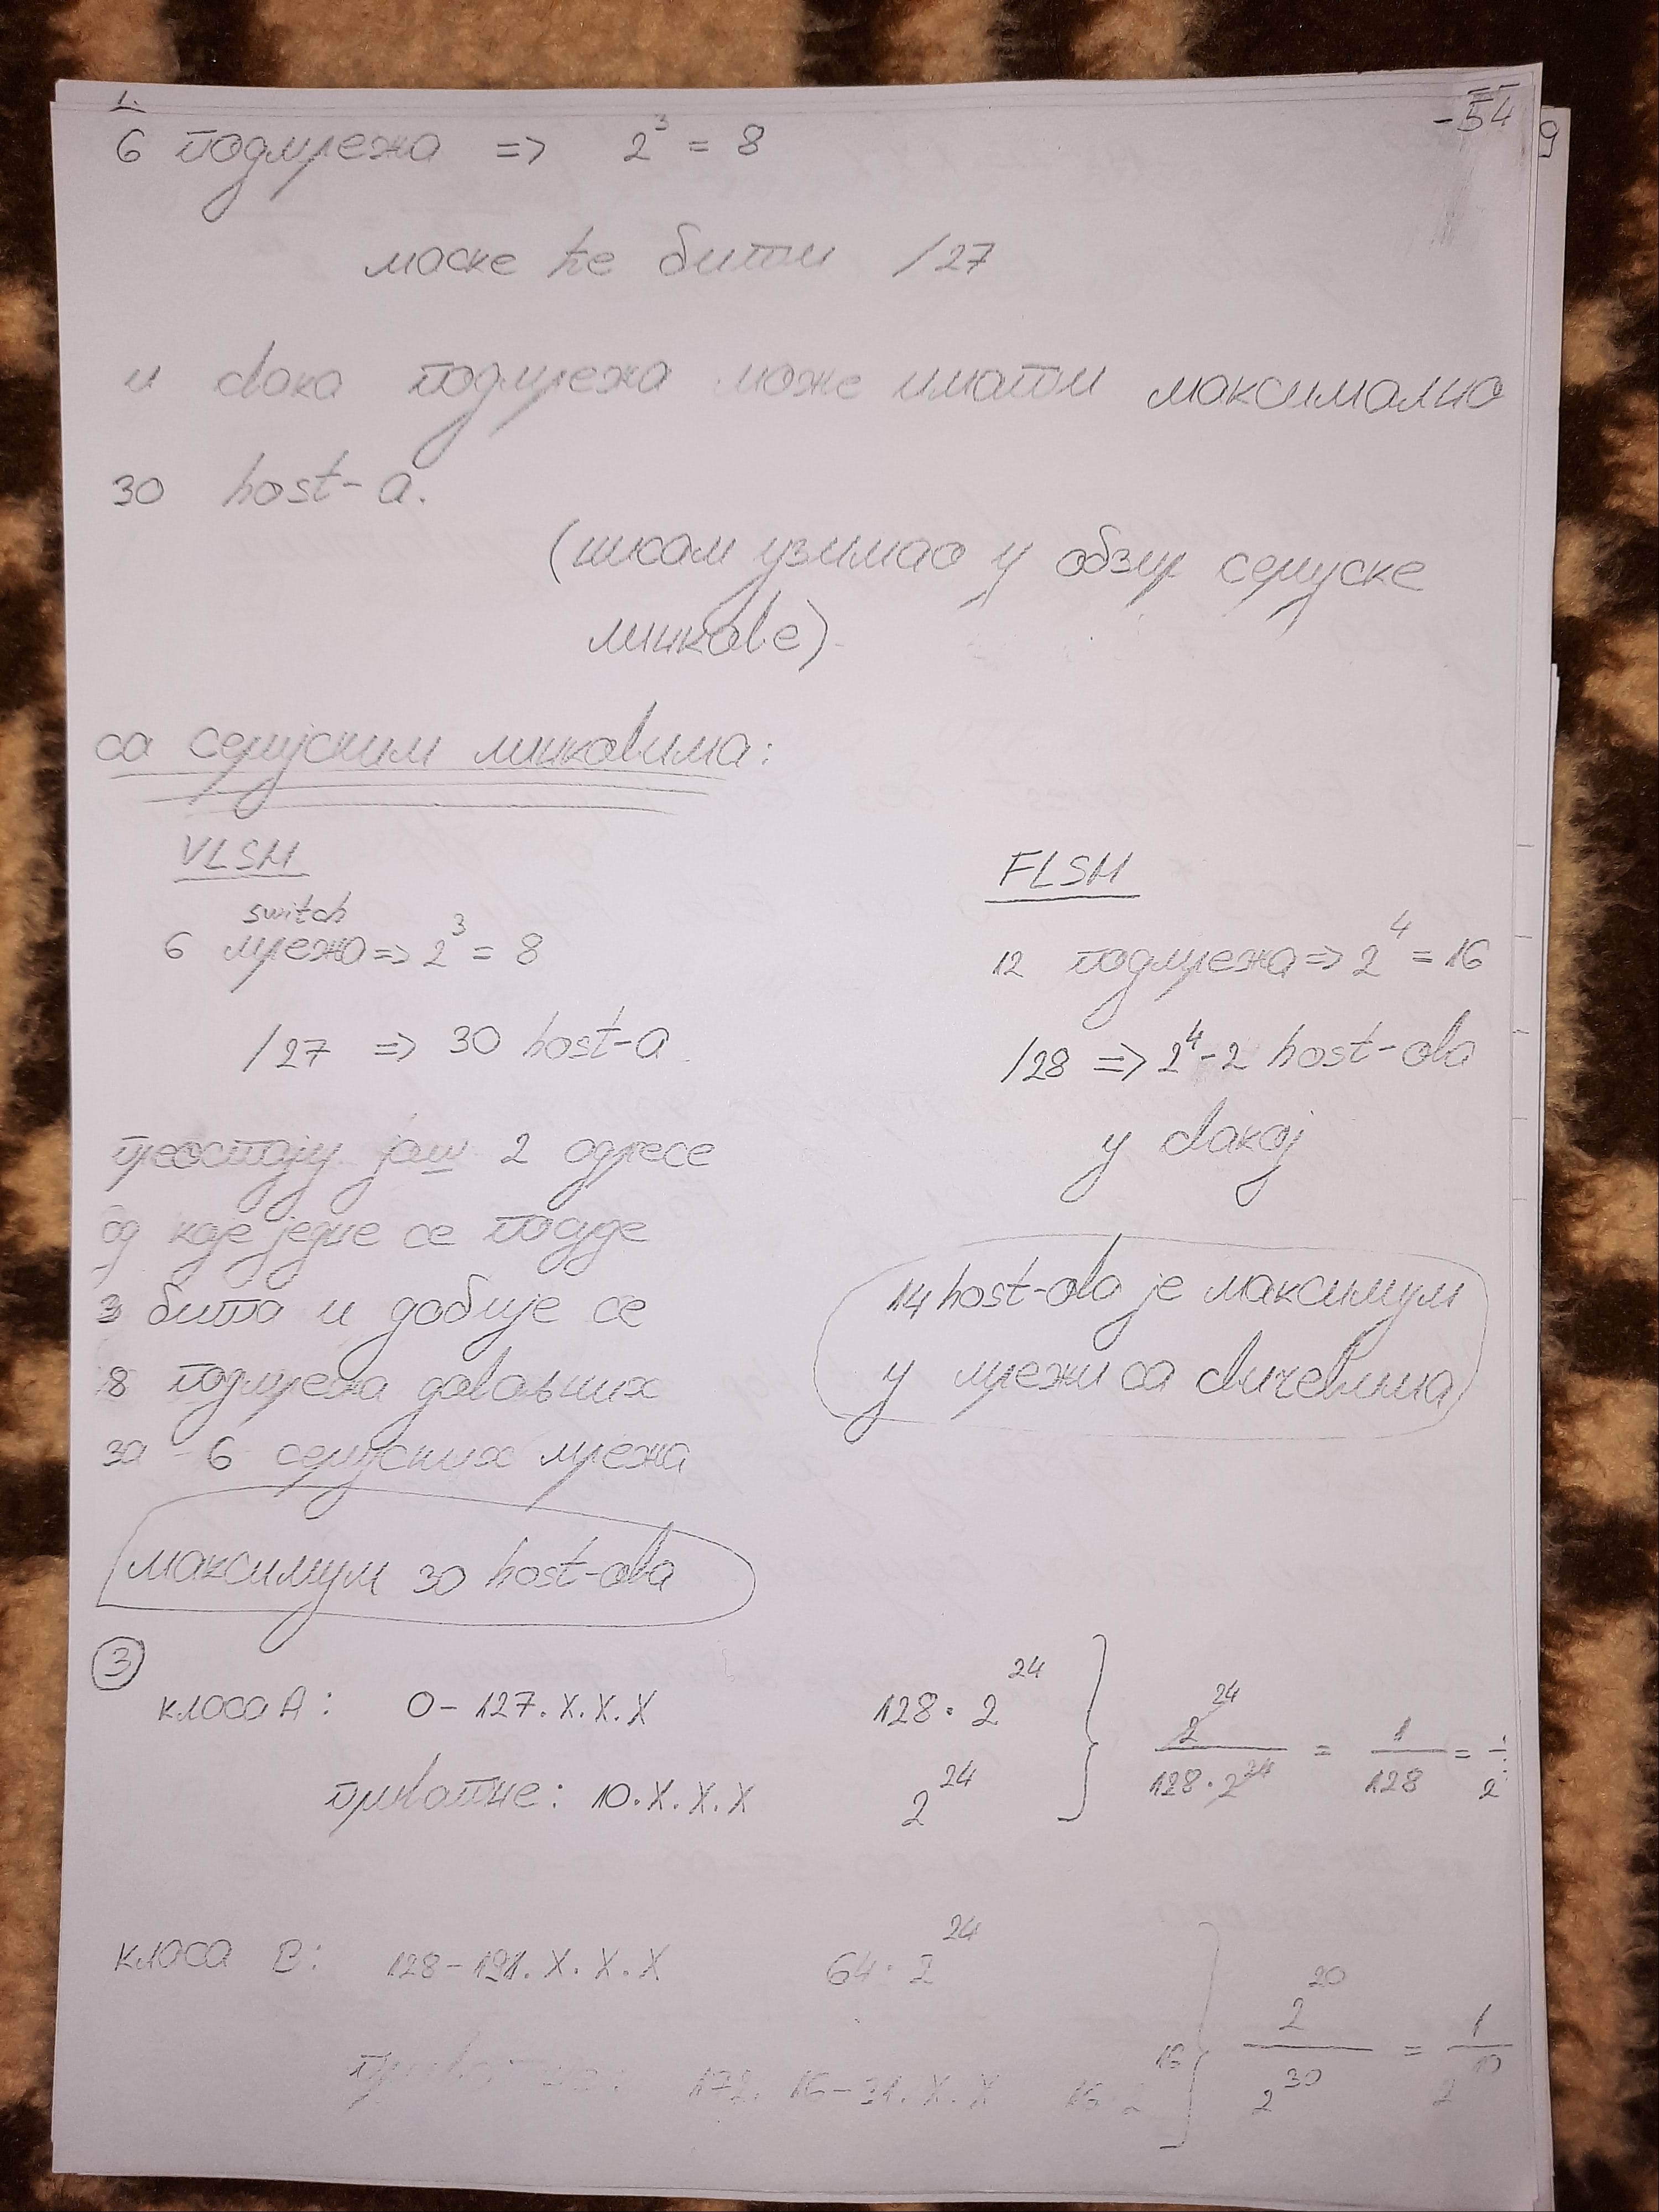 1.
-54
9
6 подмрежа => 2³ = 8
маске ће бити /27
и свака подмрежа може имати максимално
30 host-a.
(нисам узимао у обзир серијске
линкове)
са серијским линковима:
VLSM
6 switch мрежа => 2³ = 8
/27 => 30 host-a
преостају још 2 адресе
од које једне се позајме
3 бита и добије се
8 подмрежа довољних
за 6 серијских мрежа
максимум 30 host-ова
FLSM
12 подмрежа => 2⁴ = 16
/28 => 2⁴-2 host-ова
у свакој
14 host-ова је максимум
у мрежи са свичевима
③
класа A: 0-127.X.X.X 128·2²⁴ } 2²⁴/128·2²⁴ = 1/128 =
приватне: 10.X.X.X 2²⁴
класа B: 128-191.X.X.X 64·2²⁴ } 2²⁰/2³⁰ = 1/2¹⁰
приватне: 172.16-31.X.X 16·2¹⁶